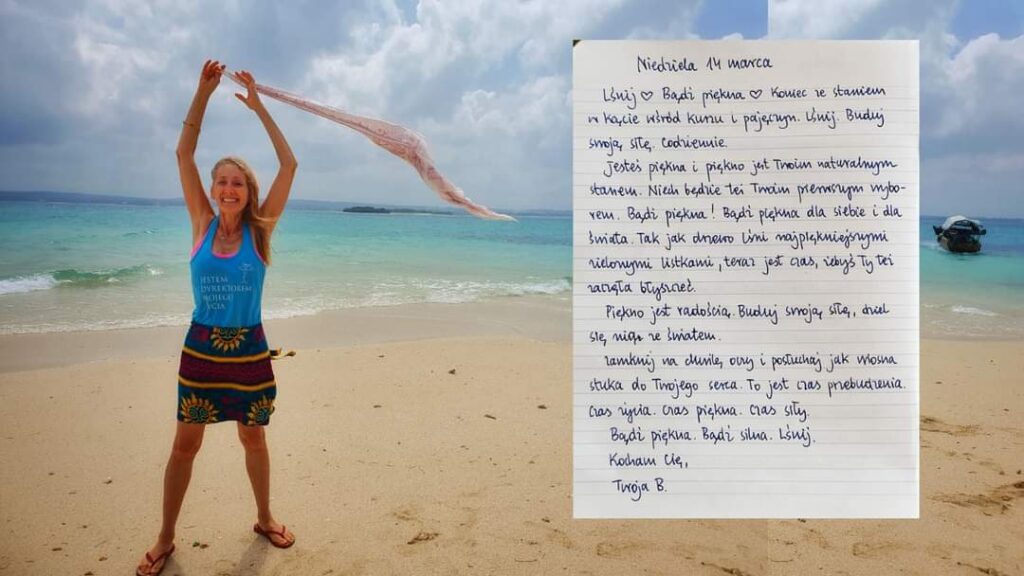 JESTEM
DYREKTOREM
MOJEGO
ŻYCIA
Niedziela 14 marca
Lśnij ♡ Bądź piękna ♡ Koniec ze staniem
w kącie wśród kurzu i pajęczyn. Lśnij. Buduj
swoją siłę. Codziennie.
Jesteś piękna i piękno jest Twoim naturalnym
stanem. Niech będzie też Twoim pierwszym wybo-
rem. Bądź piękna! Bądź piękna dla siebie i dla
świata. Tak jak drzewo lśni najpiękniejszymi
zielonymi listkami, teraz jest czas, żebyś Ty też
zaczęła błyszczeć.
Piękno jest radością. Buduj swoją siłę, dziel
się nią ze światem.
Zamknij na chwilę oczy i posłuchaj jak wiosna
stuka do Twojego serca. To jest czas przebudzenia.
Czas życia. Czas piękna. Czas siły.
Bądź piękna. Bądź silna. Lśnij.
Kocham Cię,
Twoja B.